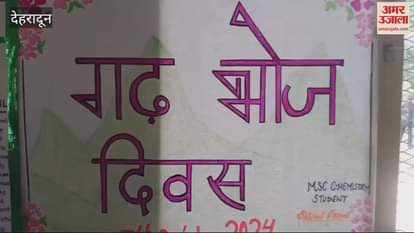 देहरादून
अमर उजाला
amarujala.com
गढ़ भोज
दिवस
MSC CHEMISTRY
STUDENT
2024